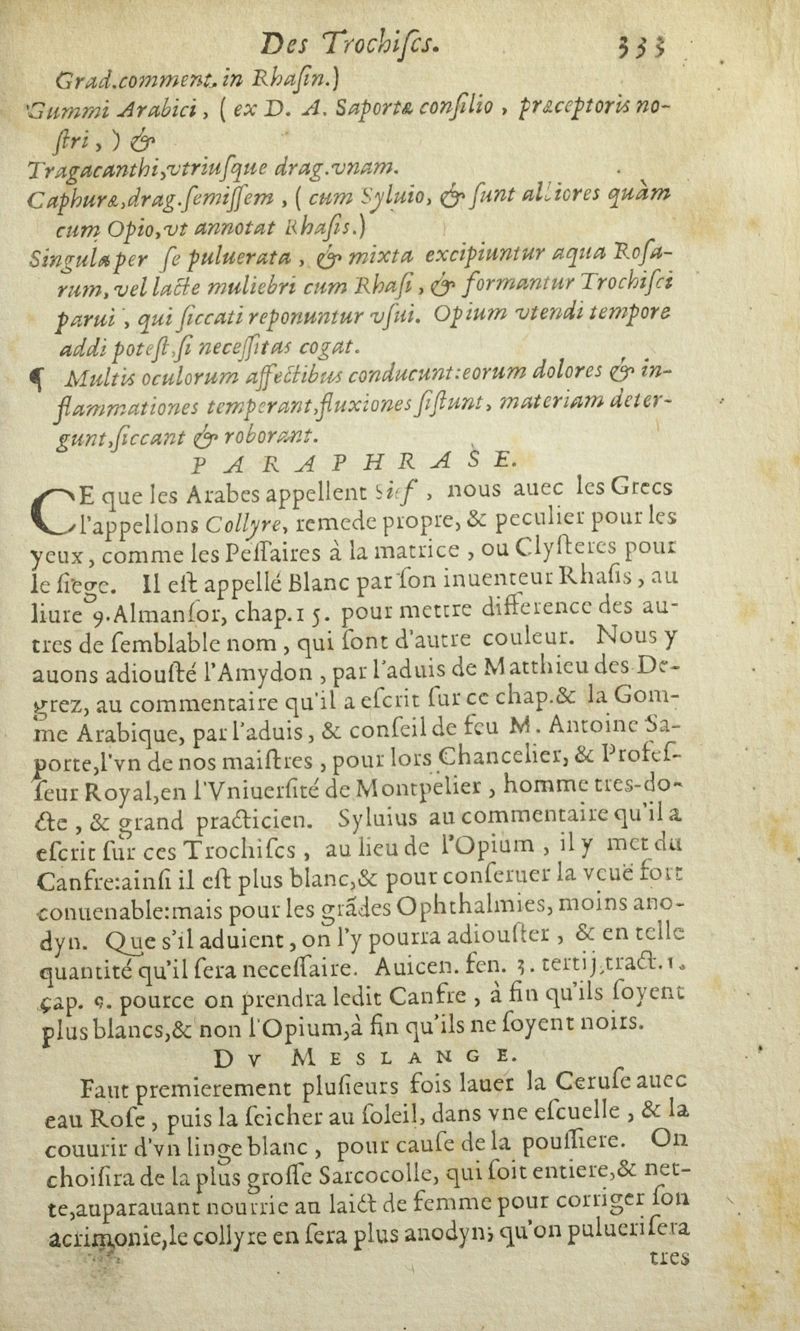 Des Trochiſcs. 333
Grad.comment. in Rhaſin.)
Gummi Arabici, ( ex D. A. Saportæ conſilio , præceptoris no-
ſtri, ) &
Tragacanthi,vtriuſque drag.vnam.
Caphuræ,drag.ſemiſſem , ( cum Syluio, & ſunt albiores quàm
cum Opio,vt annotat Rhaſis.)
Singula per ſe puluerata , & mixta excipiuntur aqua Roſa-
rum, vel lacte muliebri cum Rhaſi , & formantur Trochiſci
parui , qui ſiccati reponuntur vſui. Opium vtendi tempore
addi poteſt,ſi neceſſitas cogat.
¶ Multis oculorum affectibus conducunt:eorum dolores & in-
flammationes temperant,fluxiones ſiſtunt, materiam deter-
gunt,ſiccant & roborant.
P A R A P H R A S E.
CE que les Arabes appellent Sief , nous auec les Grecs
l'appellons Collyre, remede propre, & peculier pour les
yeux , comme les Peſſaires à la matrice , ou Clyſteres pour
le ſiege. Il eſt appellé Blanc par ſon inuenteur Rhaſis , au
liure 9.Almanſor, chap.15. pour mettre difference des au-
tres de ſemblable nom , qui ſont d'autre couleur. Nous y
auons adiouſté l'Amydon , par l'aduis de Matthieu des De-
grez, au commentaire qu'il a eſcrit ſur ce chap.& la Gom-
me Arabique, par l'aduis, & conſeil de feu M. Antoine Sa-
porte,l'vn de nos maiſtres , pour lors Chancelier, & Profeſ-
ſeur Royal,en l'Vniuerſité de Montpelier , homme tres-do-
cte , & grand practicien. Syluius au commentaire qu'il a
eſcrit ſur ces Trochiſcs , au lieu de l'Opium , il y met du
Canfre:ainſi il eſt plus blanc,& pour conſeruer la veuë fort
conuenable:mais pour les grãdes Ophthalmies, moins ano-
dyn. Que s'il aduient , on l'y pourra adiouſter , & en telle
quantité qu'il ſera neceſſaire. Auicen. fen. 3. tertij,tract.1.
çap. 9. pource on prendra ledit Canfre , à fin qu'ils ſoyent
plus blancs,& non l'Opium,à fin qu'ils ne ſoyent noirs.
D V M E S L A N G E.
Faut premierement pluſieurs fois lauer la Ceruſe auec
eau Roſe , puis la ſeicher au ſoleil, dans vne eſcuelle , & la
couurir d'vn linge blanc , pour cauſe de la pouſſiere. On
choiſira de la plus groſſe Sarcocolle, qui ſoit entiere,& net-
te,auparauant nourrie au laict de femme pour corriger ſon
acrimonie,le collyre en ſera plus anodyn; qu'on pulueriſera
tres